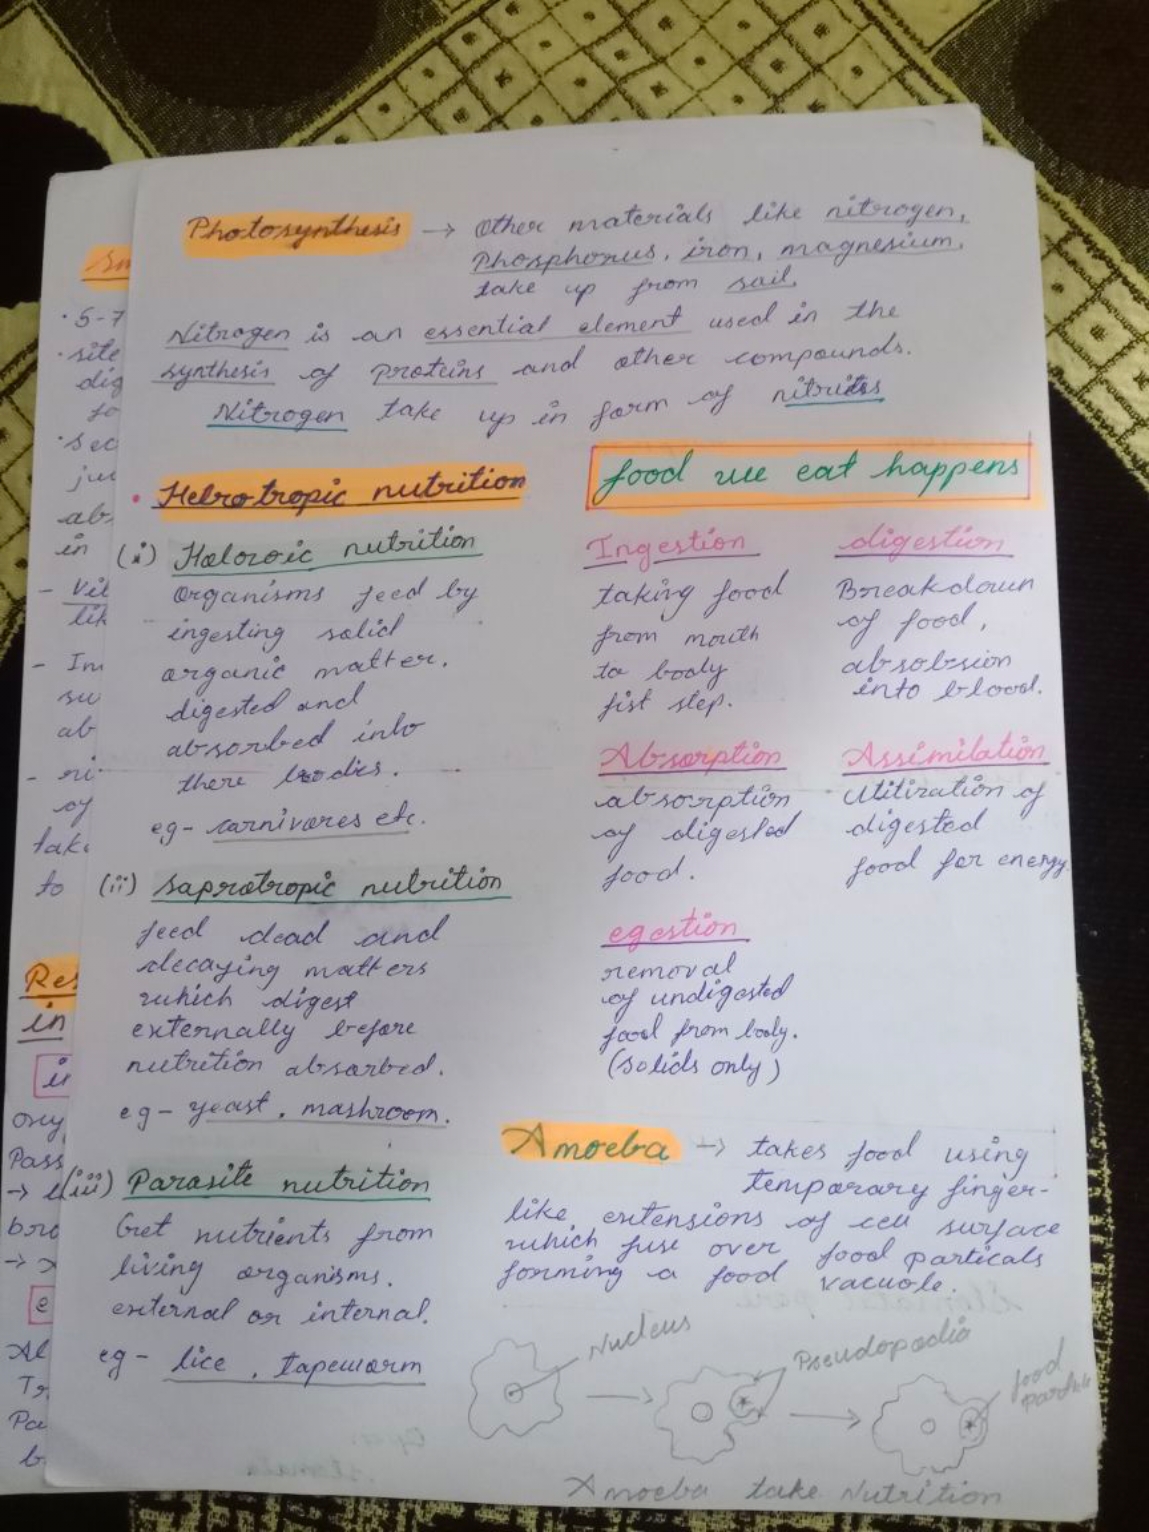 Photosynthesis → Other materials like nitrogen,
Phosphorus, iron, magnesium,
take up from sail.
Nitrogen is an essential element used in the
synthesis of proteins and other compounds.
Nitrogen take up in form of
• Hebrotropic nutrition
(i) Holozoic nutrition
organisms feed by
ingesting solid
organic matter.
digested and
absorbed into
there bodies.
eg- carnivores etc.
(ii) saprotropic nutrition
feed dead and
decaying matters
which digest
externally before
nutrition absorbed.
eg- yeast, mashroom.
(iii) Parasite nutrition
Get nutrients from
living organisms.
external or internal.
eg- lice, tapeworm
food we eat happens
Ingestion
taking food
from mouth
to body
fist step.
digestion
Breakdown
of food,
absobsion
into blood.
Absorption
absorption
of digested
food.
Assimilation
Utilization of
digested
food for energy
egestion
removal
of undigested
food from body.
(solids only)
Amoeba → takes food using
temporary finger-
like extensions of cell surface
which fuse over food particals
forming a food vacuole.
Nucleus
Pseudopodia
food
particle
Amoeba take Nutrition
Sm
• 5-7
• site
dig
fo
• sec
jui
ab
in
- Vil
lik
- Inn
su
ab
- ni
of
take
to
Res
in
oxy
Pass
bro
e
Al
Tr
Pa
b